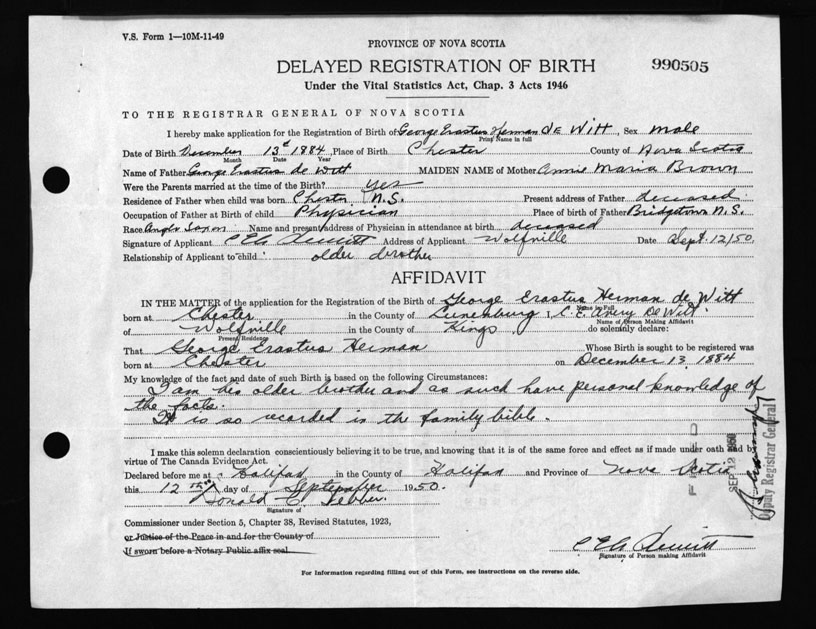 V.S. Form 1—10M-11-49
PROVINCE OF NOVA SCOTIA
DELAYED REGISTRATION OF BIRTH
990505
Under the Vital Statistics Act, Chap. 3 Acts 1946
TO THE REGISTRAR GENERAL OF NOVA SCOTIA
I hereby make application for the Registration of Birth of George Erastus Herman De Witt, Sex male
Print Name in full
Date of Birth December 13th 1884, Place of Birth Chester County of Nova Scotia
Month Date Year
Name of Father George Erastus de Witt MAIDEN NAME of Mother Annie Maria Brown
Were the Parents married at the time of the Birth? yes
Residence of Father when child was born Chester N.S. Present address of Father deceased
Occupation of Father at Birth of child Physician Place of birth of Father Bridgetown N.S.
Race Anglo Saxon Name and present address of Physician in attendance at birth deceased
Signature of Applicant C E A DeWitt Address of Applicant Wolfville Date Sept. 12/50.
Relationship of Applicant to child older brother
AFFIDAVIT
IN THE MATTER of the application for the Registration of the Birth of George Erastus Herman de Witt
Name in Full
born at Chester in the County of Lunenburg I, C. E. Avery DeWitt.
Name of Person Making Affidavit
of Wolfville in the County of Kings do solemnly declare:
Present Residence
That George Erastus Herman Whose Birth is sought to be registered was
born at Chester on December 13, 1884
My knowledge of the fact and date of such Birth is based on the following Circumstances:
I am his older brother and as such have personal knowledge of
the facts.
It is so recorded in the family bible.
I make this solemn declaration conscientiously believing it to be true, and knowing that it is of the same force and effect as if made under oath and
virtue of The Canada Evidence Act.
Declared before me at Halifax in the County of Halifax and Province of Nova Scotia
this 12th day of September 1950.
Donald C.
Signature of
Commissioner under Section 5, Chapter 38, Revised Statutes, 1923,
or Justice of the Peace in and for the County of
If sworn before a Notary Public affix seal
C E A DeWitt
Signature of Person making Affidavit
For Information regarding filling out of this Form, see instructions on the reverse side.
FILED
SEP 12 1950
Deputy Registrar General